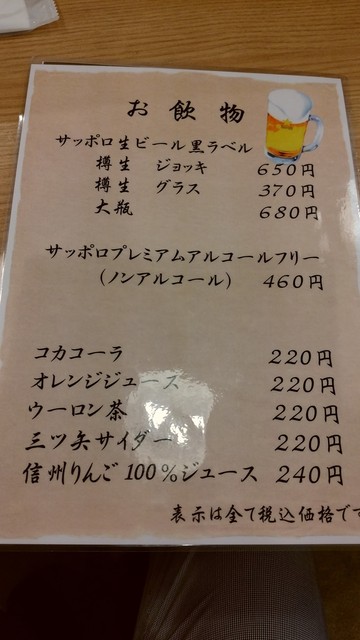 お飲物
サッポロ生ビール黒ラベル
樽生 ジョッキ 650円
樽生 グラス 370円
大瓶 680円
サッポロプレミアムアルコールフリー
(ノンアルコール) 460円
コカコーラ 220円
オレンジジュース 220円
ウーロン茶 220円
三ツ矢サイダー 220円
信州りんご100%ジュース 240円
表示は全て税込価格です